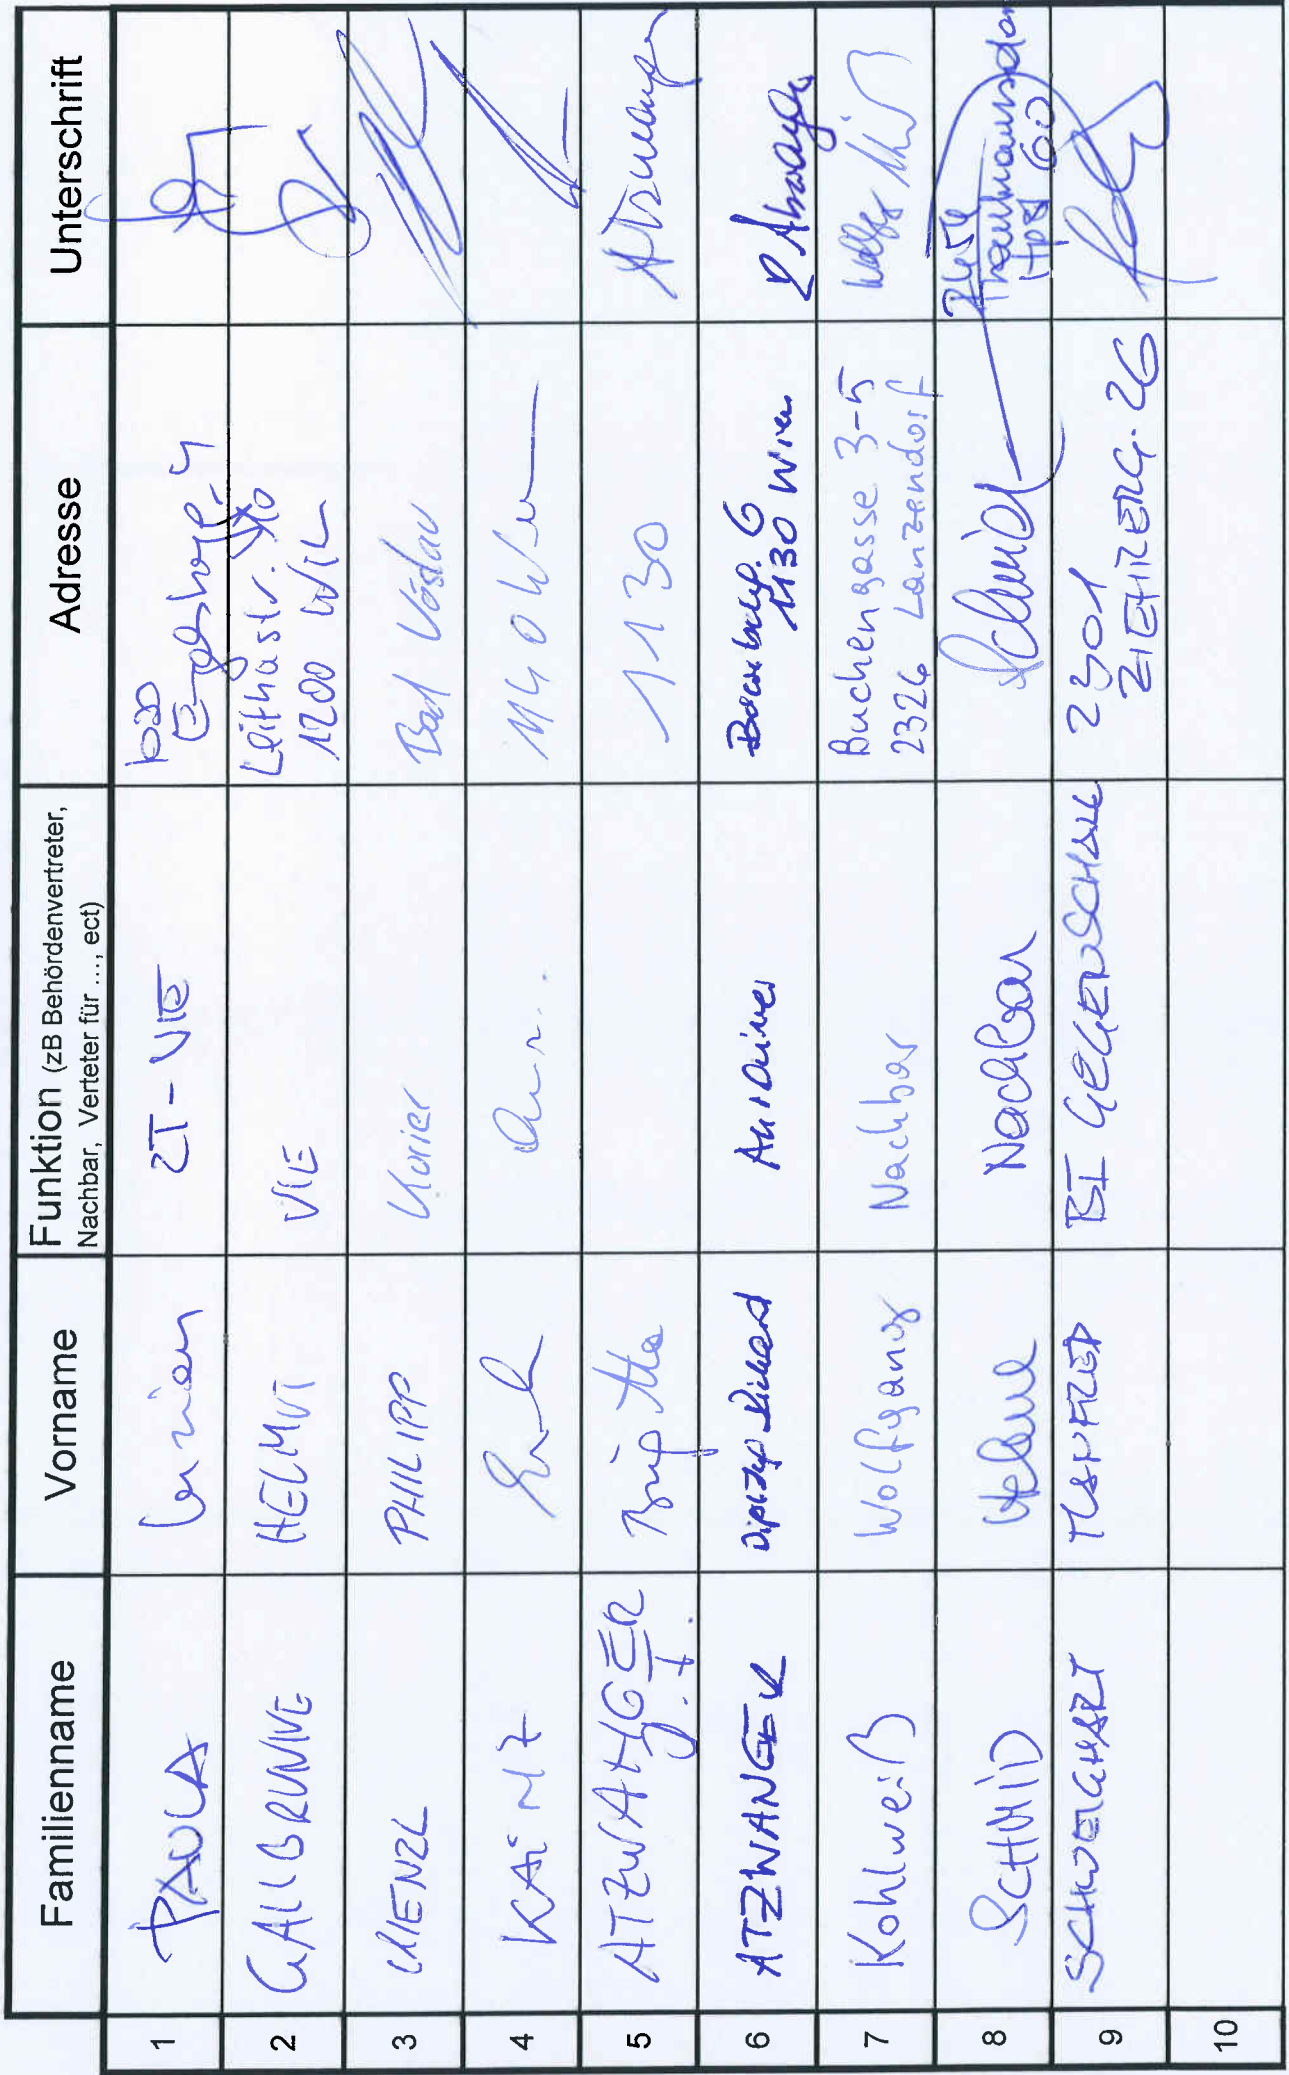 Familienname
Vorname
Funktion (zB Behördenvertreter,
Nachbar, Verteter für ..., ect)
Adresse
Unterschrift
1
PAULA
ZT-VIE
2
GALLBRUNNE
HELMUT
VIE
Leithastr. 10
1200 WIL
3
PHILIPP
Kurier
Bad Vöslau
4
KAINZ
Anr.
1140 Wien
5
ATZWANGER
Brigitta
1130
Atzwanger
6
ATZWANGER
Dipl.Ing Richard
Anrainer
1130 Wien
R Atzwanger
7
Kohlweiß
Wolfgang
Nachbar
Buchengasse 3-5
2326 Lanzendorf
8
SCHMID
Helene
Nachbar
Schmid
Trautmannsdorf
Hpst 60
9
MANFRED
BI GEGENSCHALL
2301
ZIEHRERG. 26
10